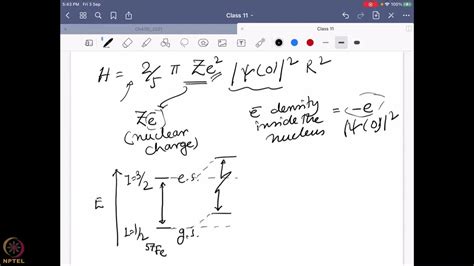 5:43 PM Fri 3 Sep
Class 11
Class 11
H = 2/5 π Ze² |Ψ(0)|² R²
Ze
(nuclear
charge)
ē density
inside the
nucleus
= -e
|Ψ(0)|²
E
I=3/2
e.s.
I=1/2
g.s.
⁵⁷Fe
NPTEL